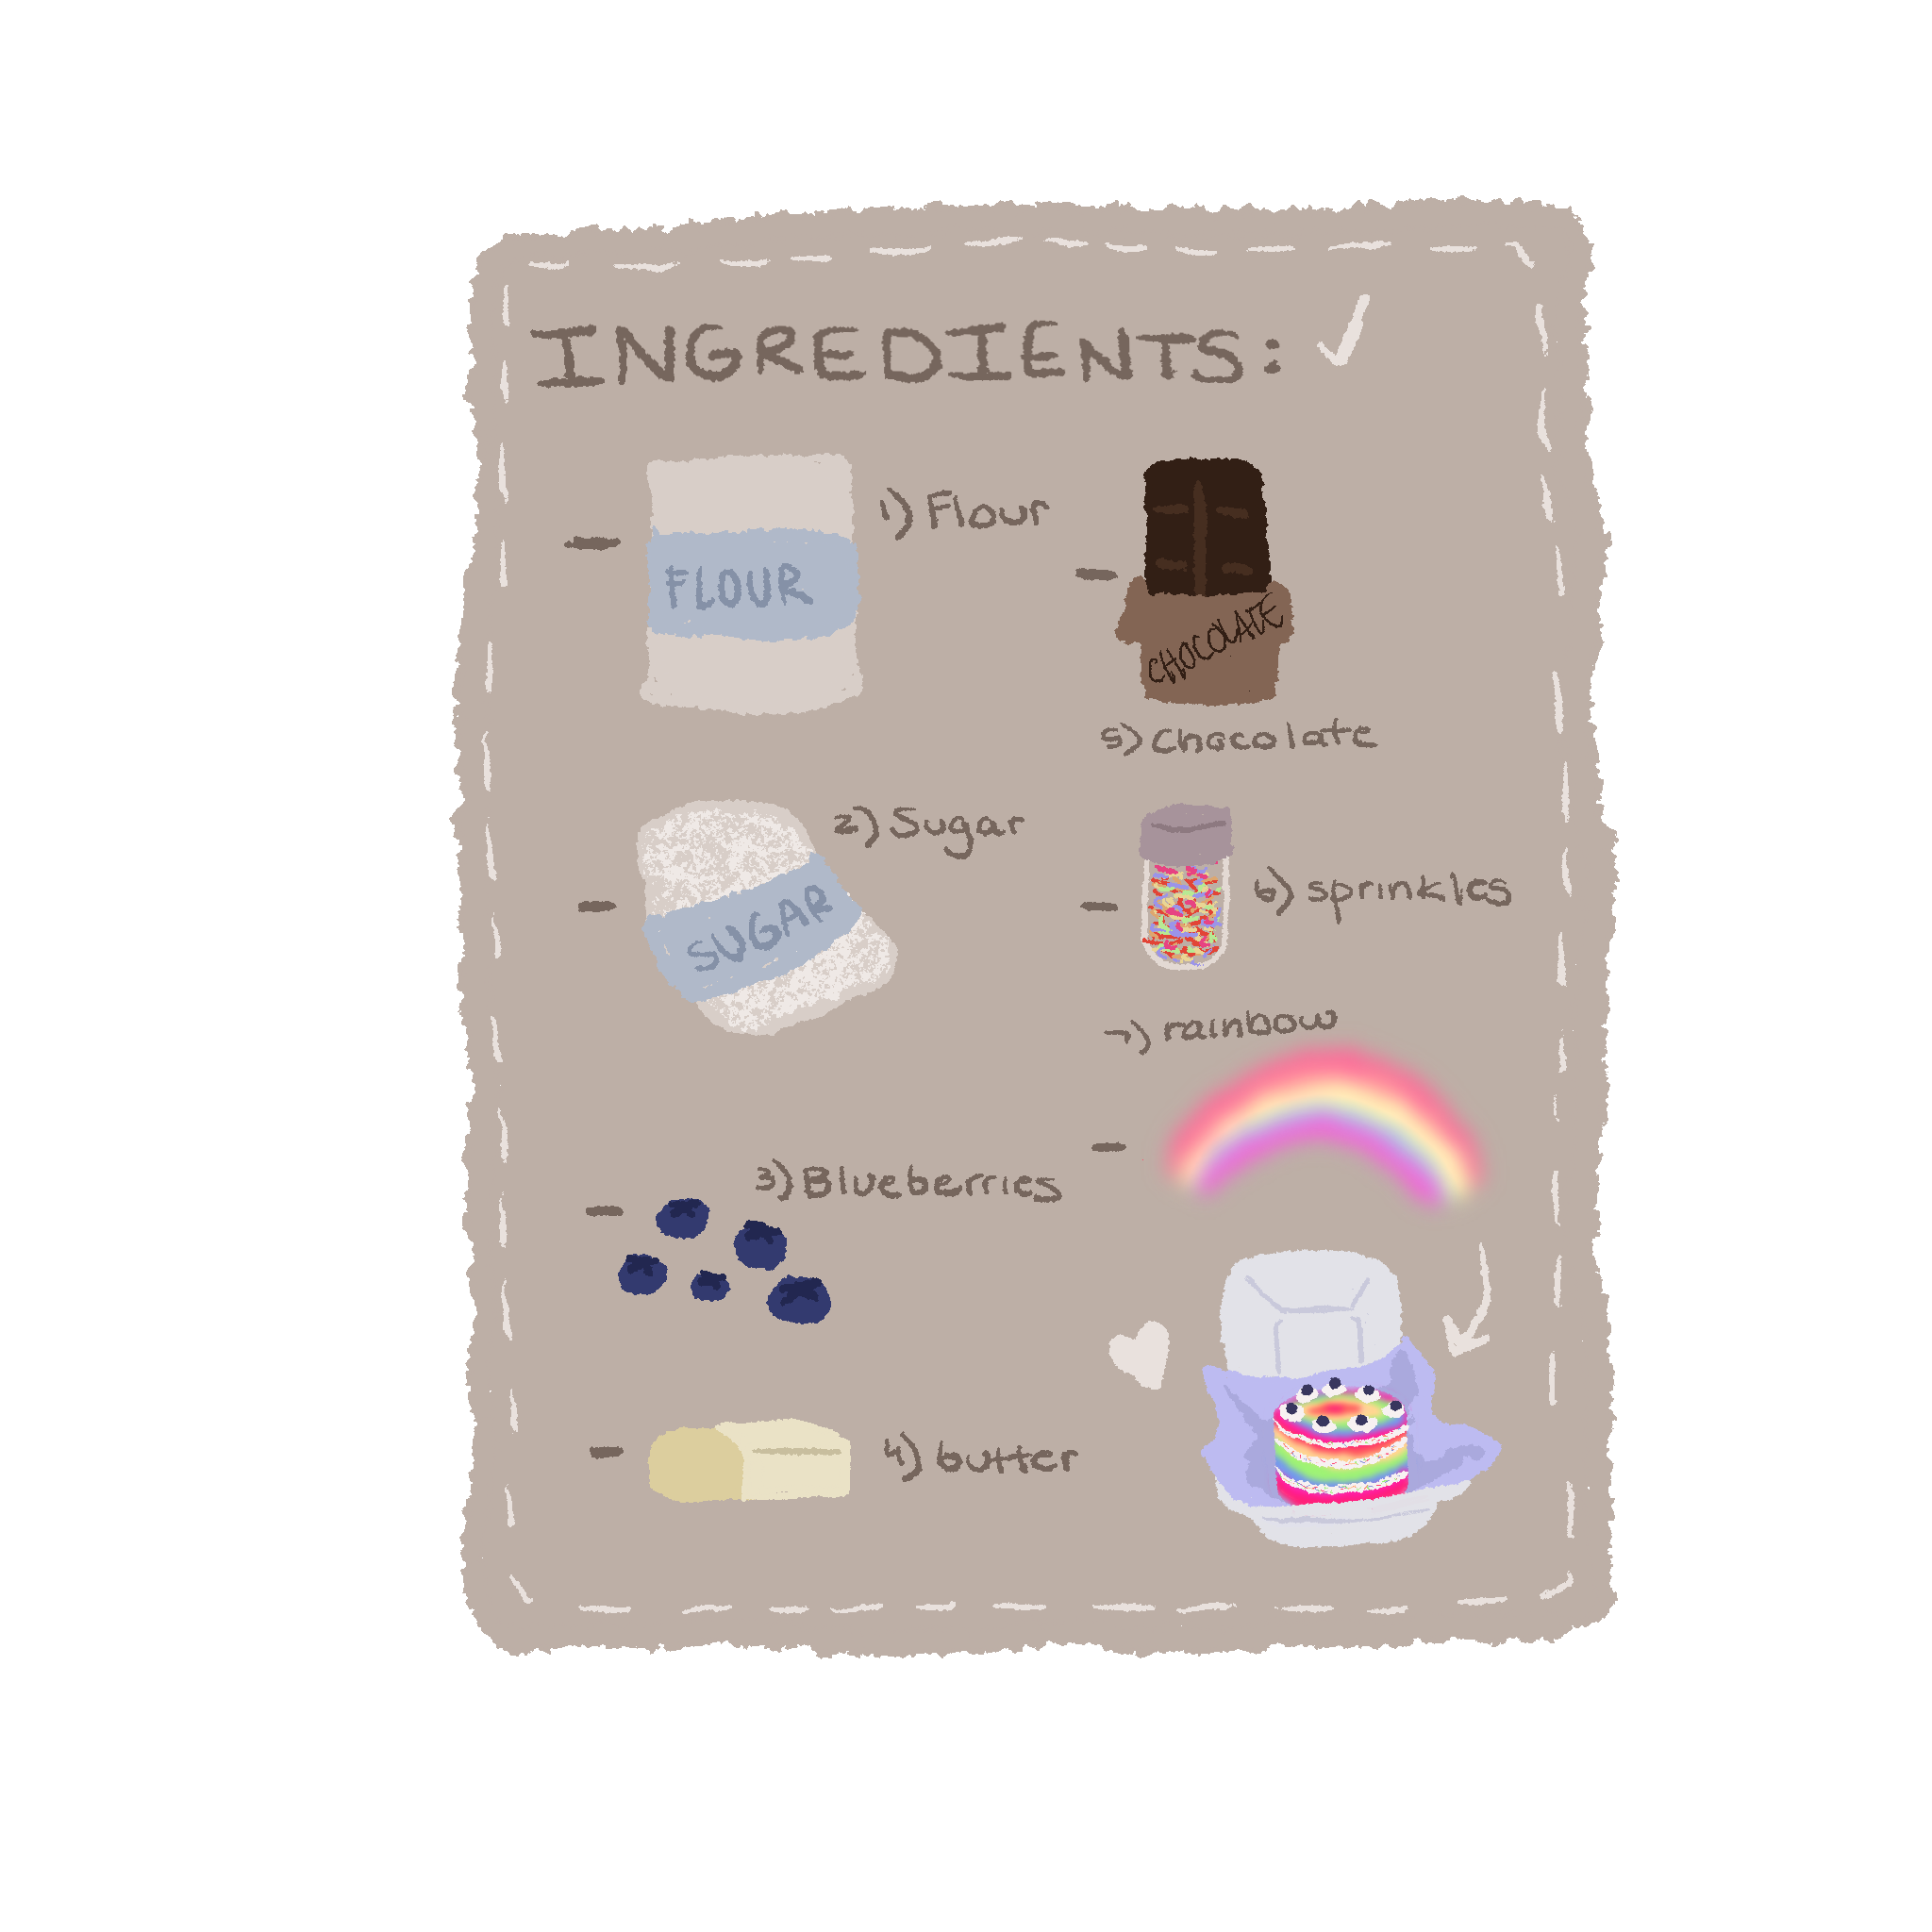 INGREDIENTS:
1) Flour
FLOUR
2) Sugar
SUGAR
3) Blueberries
4) butter
CHOCOLATE
5) Chocolate
6) sprinkles
7) rainbow